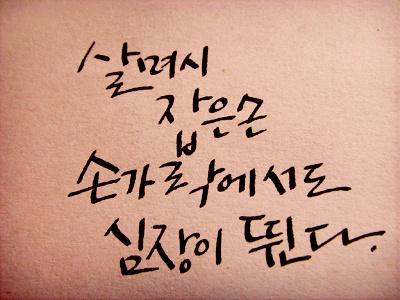 살며시
잡은손
손가락에서도
심장이 뛴다.